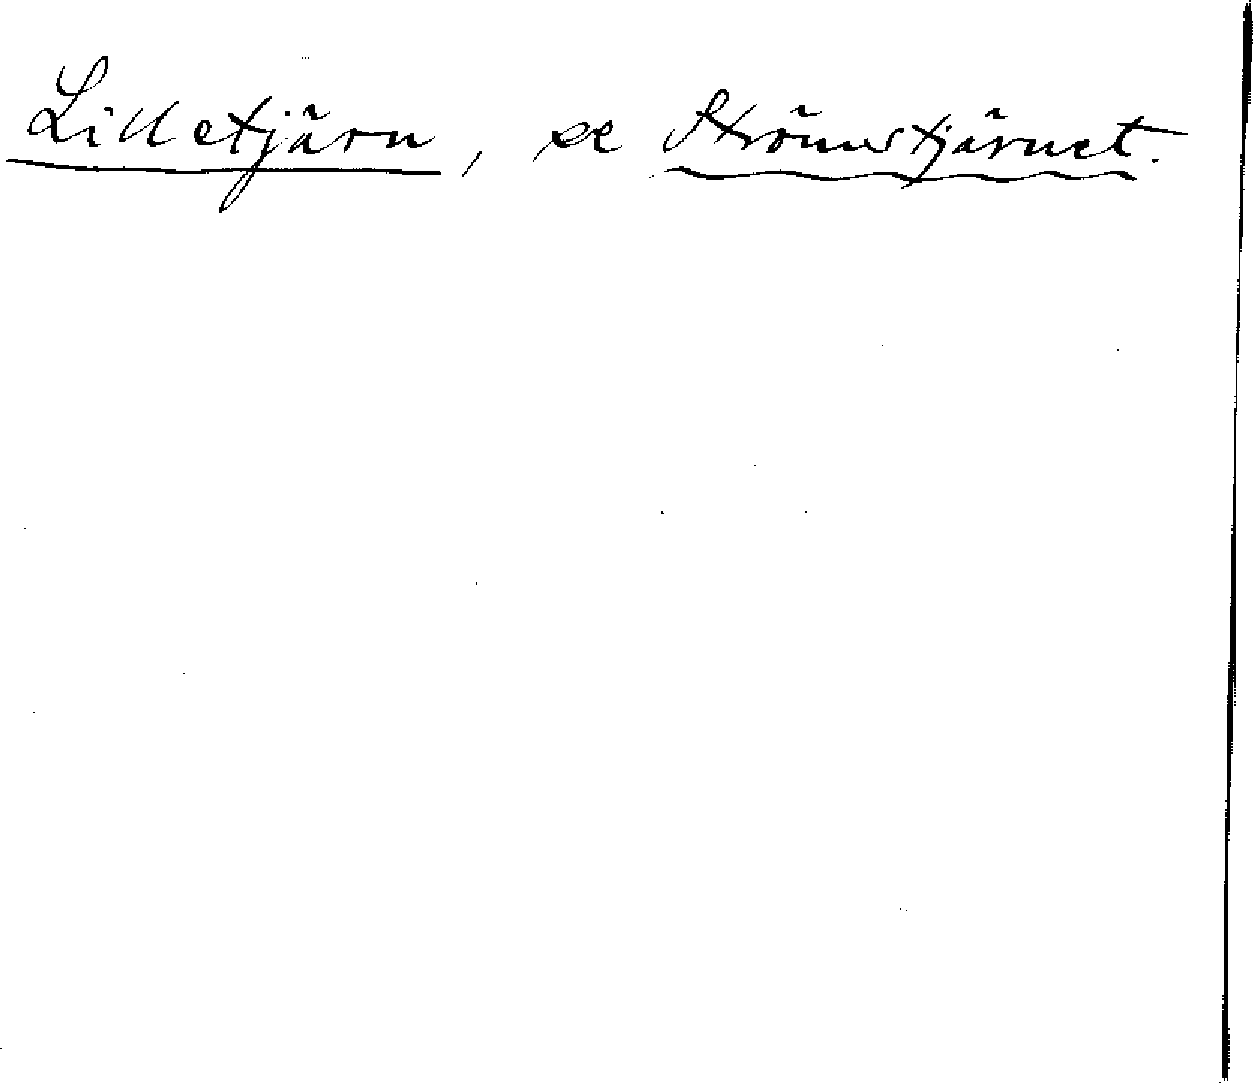 Lilletjärn, se Strömstjärnet.